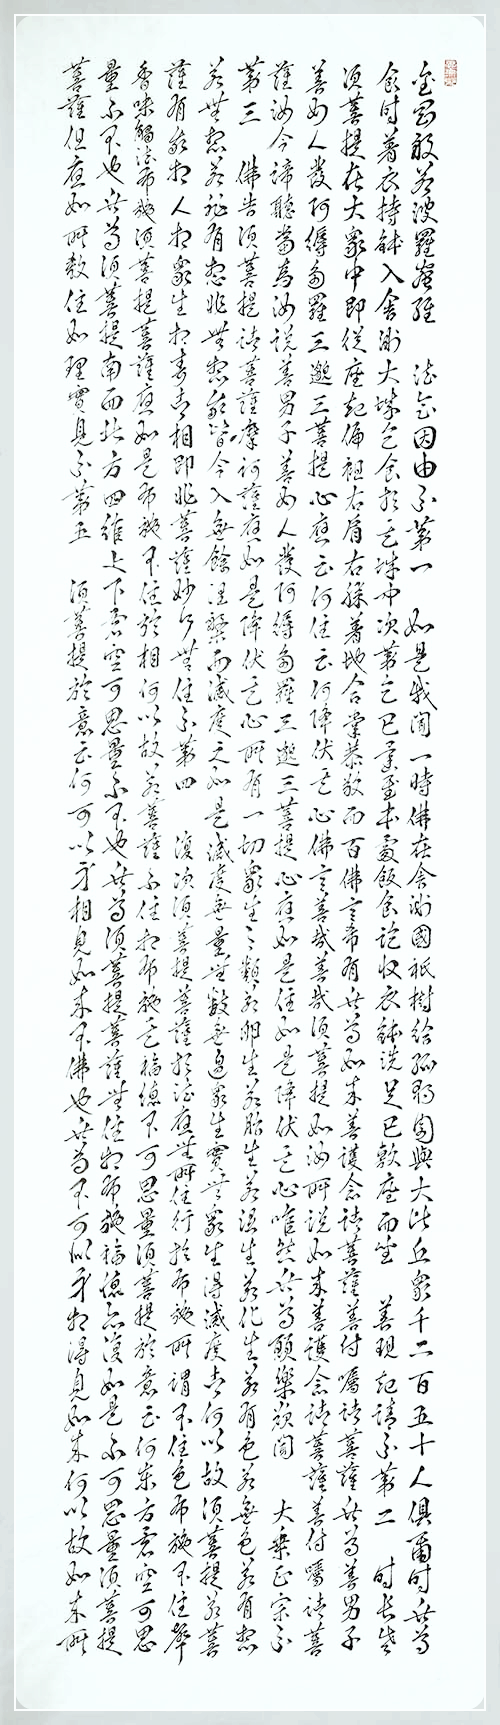 金剛般若波羅蜜經　法會因由分第一　如是我聞一時佛在舍衛國祇樹給孤獨園與大比丘眾千二百五十人俱爾時世尊
食時著衣持鉢入舍衛大城乞食於其城中次第乞已還至本處飯食訖收衣鉢洗足已敷座而坐　善現起請分第二　時長老
須菩提在大眾中即從座起偏袒右肩右膝著地合掌恭敬而百佛言希有世尊如來善護念諸菩薩善付囑諸菩薩世尊善男子
善女人發阿耨多羅三藐三菩提心應云何住云何降伏其心佛言善哉善哉須菩提如汝所說如來善護念諸菩薩善付囑諸菩
薩汝今諦聽當為汝說善男子善女人發阿耨多羅三藐三菩提心應如是住如是降伏其心唯然世尊願樂欲聞　大乘正宗分
第三　佛告須菩提諸菩薩摩訶薩應如是降伏其心所有一切眾生之類若卵生若胎生若濕生若化生若有色若無色若有想
若無想若非有想非無想我皆令入無餘涅槃而滅度之如是滅度無量無數無邊眾生實無眾生得滅度者何以故須菩提若菩
薩有我相人相眾生相壽者相即非菩薩妙行無住分第四　復次須菩提菩薩於法應無所住行於布施所謂不住色布施不住聲
香味觸法布施須菩提菩薩應如是布施不住於相何以故若菩薩不住相布施其福德不可思量須菩提於意云何東方虛空可思
量不不也世尊須菩提南西北方四維上下虛空可思量不不也世尊須菩提菩薩無住相布施福德亦復如是不可思量須菩提
菩薩但應如所教住如理實見分第五　須菩提於意云何可以身相見如來不佛也世尊不可以身相得見如來何以故如來所